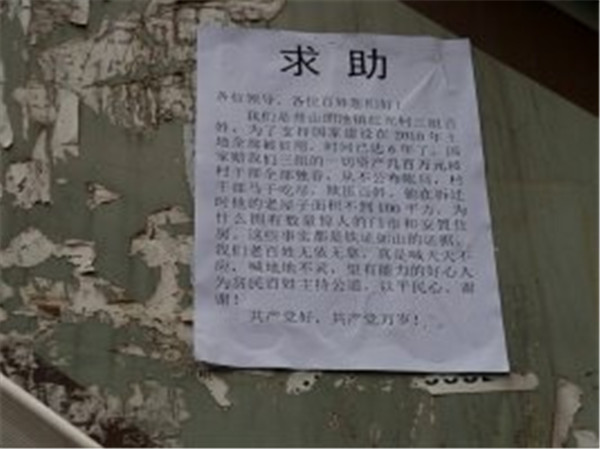 求助
各位领导、各位百姓您们好！
我们是山镇红光村三组百
姓，为了支持国家建设在2010年土
地全部被征用，时间已达6年了。国
家赔我们三组的一切资产几百万元被
村干部全部独吞，从不公布账目，村
干部吃尽，欺压百姓，他在拆迁
时候的老屋子面积不到100平方，为
什么拥有数量惊人的门市和安置住
房，这些事实都是铁证如山的证据，
我们老百姓无依无靠，真是喊天天不
应，喊地地不灵，望有能力的好心人
为贫民百姓主持公道，以平民心，谢
谢！
共产党好，共产党万岁！